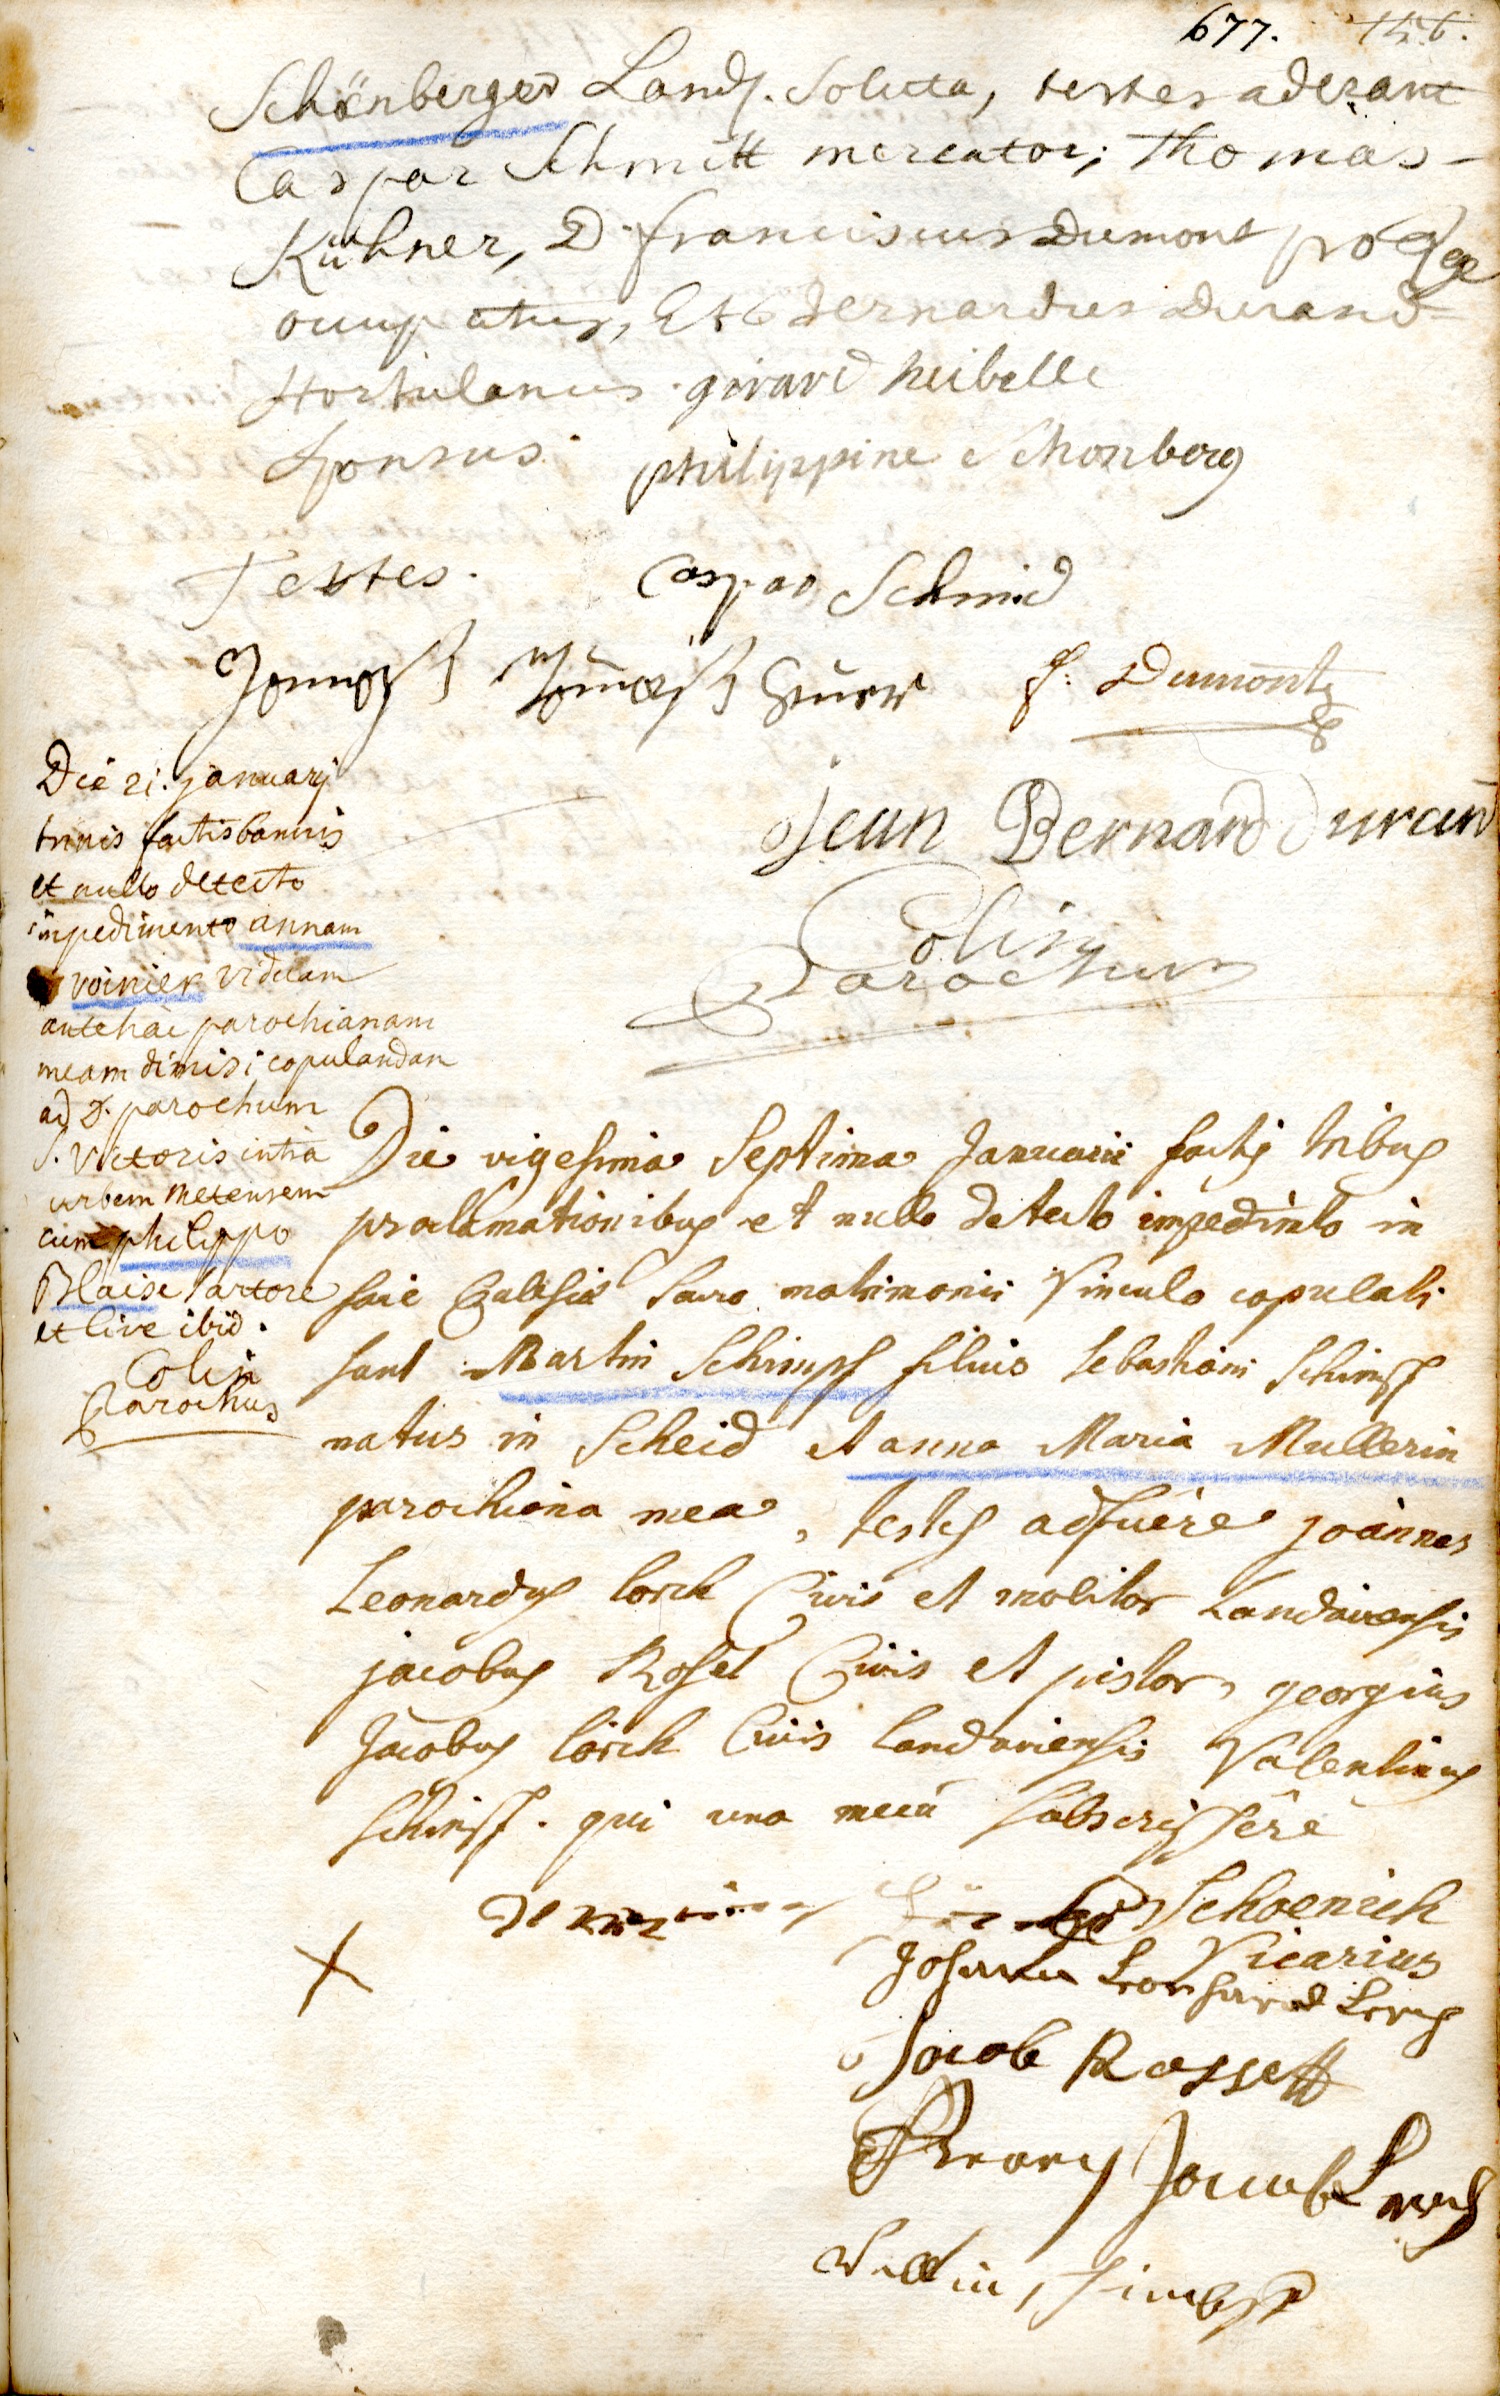 677.
Schönberger Land. soluta, testes aderant
Caspar Schmitt mercator, Thomas
Kühner, D. franciscus Dumont pro Rege
occupatus, Et Bernardus Durand
Hortulanus. girard heibelle
Sponsus. philippine schonberg
Testes. Caspar Schmid
f: Dumont
Jean Bernard durand
Colin
Parochus
Die 21. januarij
trinis factis bannis
et nullo detecto
impedimento annam
voinier viduam
antehac parochianam
meam dimisi copulandam
ad D. parochum
S. Victoris intra
urbem metensem
cum philippo
Blaise sartore
et cive ibid.
Colin
Parochus
Die vigesima septima Januarii factis tribus
proclamationibus et nullo detecto impedimto in
facie Ecclesiae sacro matrimonii vinculo copulati
sunt Martin Schimpf filius sebastiani Schimpf
natus in Scheid et anna Maria Mullerin
parochiana mea, testes adfuêre joannes
Leonardus lorch Civis et molitor Landaviensis
jacobus Rossel Civis et pistor, georgius
Jacobus lorch Civis landaviensis Valentinus
schimpf. qui una mecū subscripsêre
Schoenich
Vicarius
Johann Leonhard Lorch
Jacob Rossell
Jacob Lorch